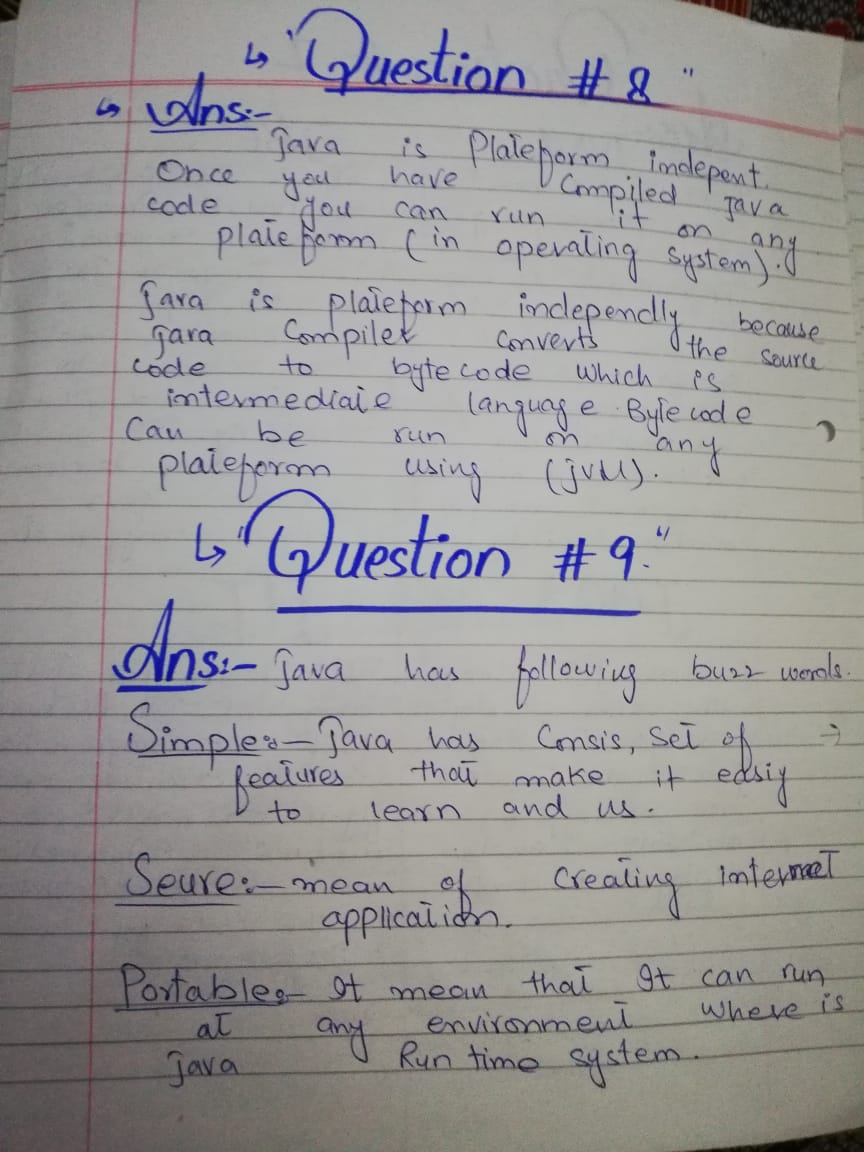 ↳ "Question #8"
↳ Ans:-
Java is Plateform indepent.
Once you have Compiled Java
code you can run it on any
plateform (in operating system).
Java is plateform independly because
Java Compiler converts the source
code to bytecode which is
intermediate language. Bytecode
Can be run on any
plateform using (JVM).
↳ "Question #9."
Ans:- Java has following buzz words.
Simple:- Java has Consis, set of →
features that make it easiy
to learn and us.
Seure:- mean of creating internet
application.
Portable:- It mean that It can run
at any environment where is
Java Run time system.